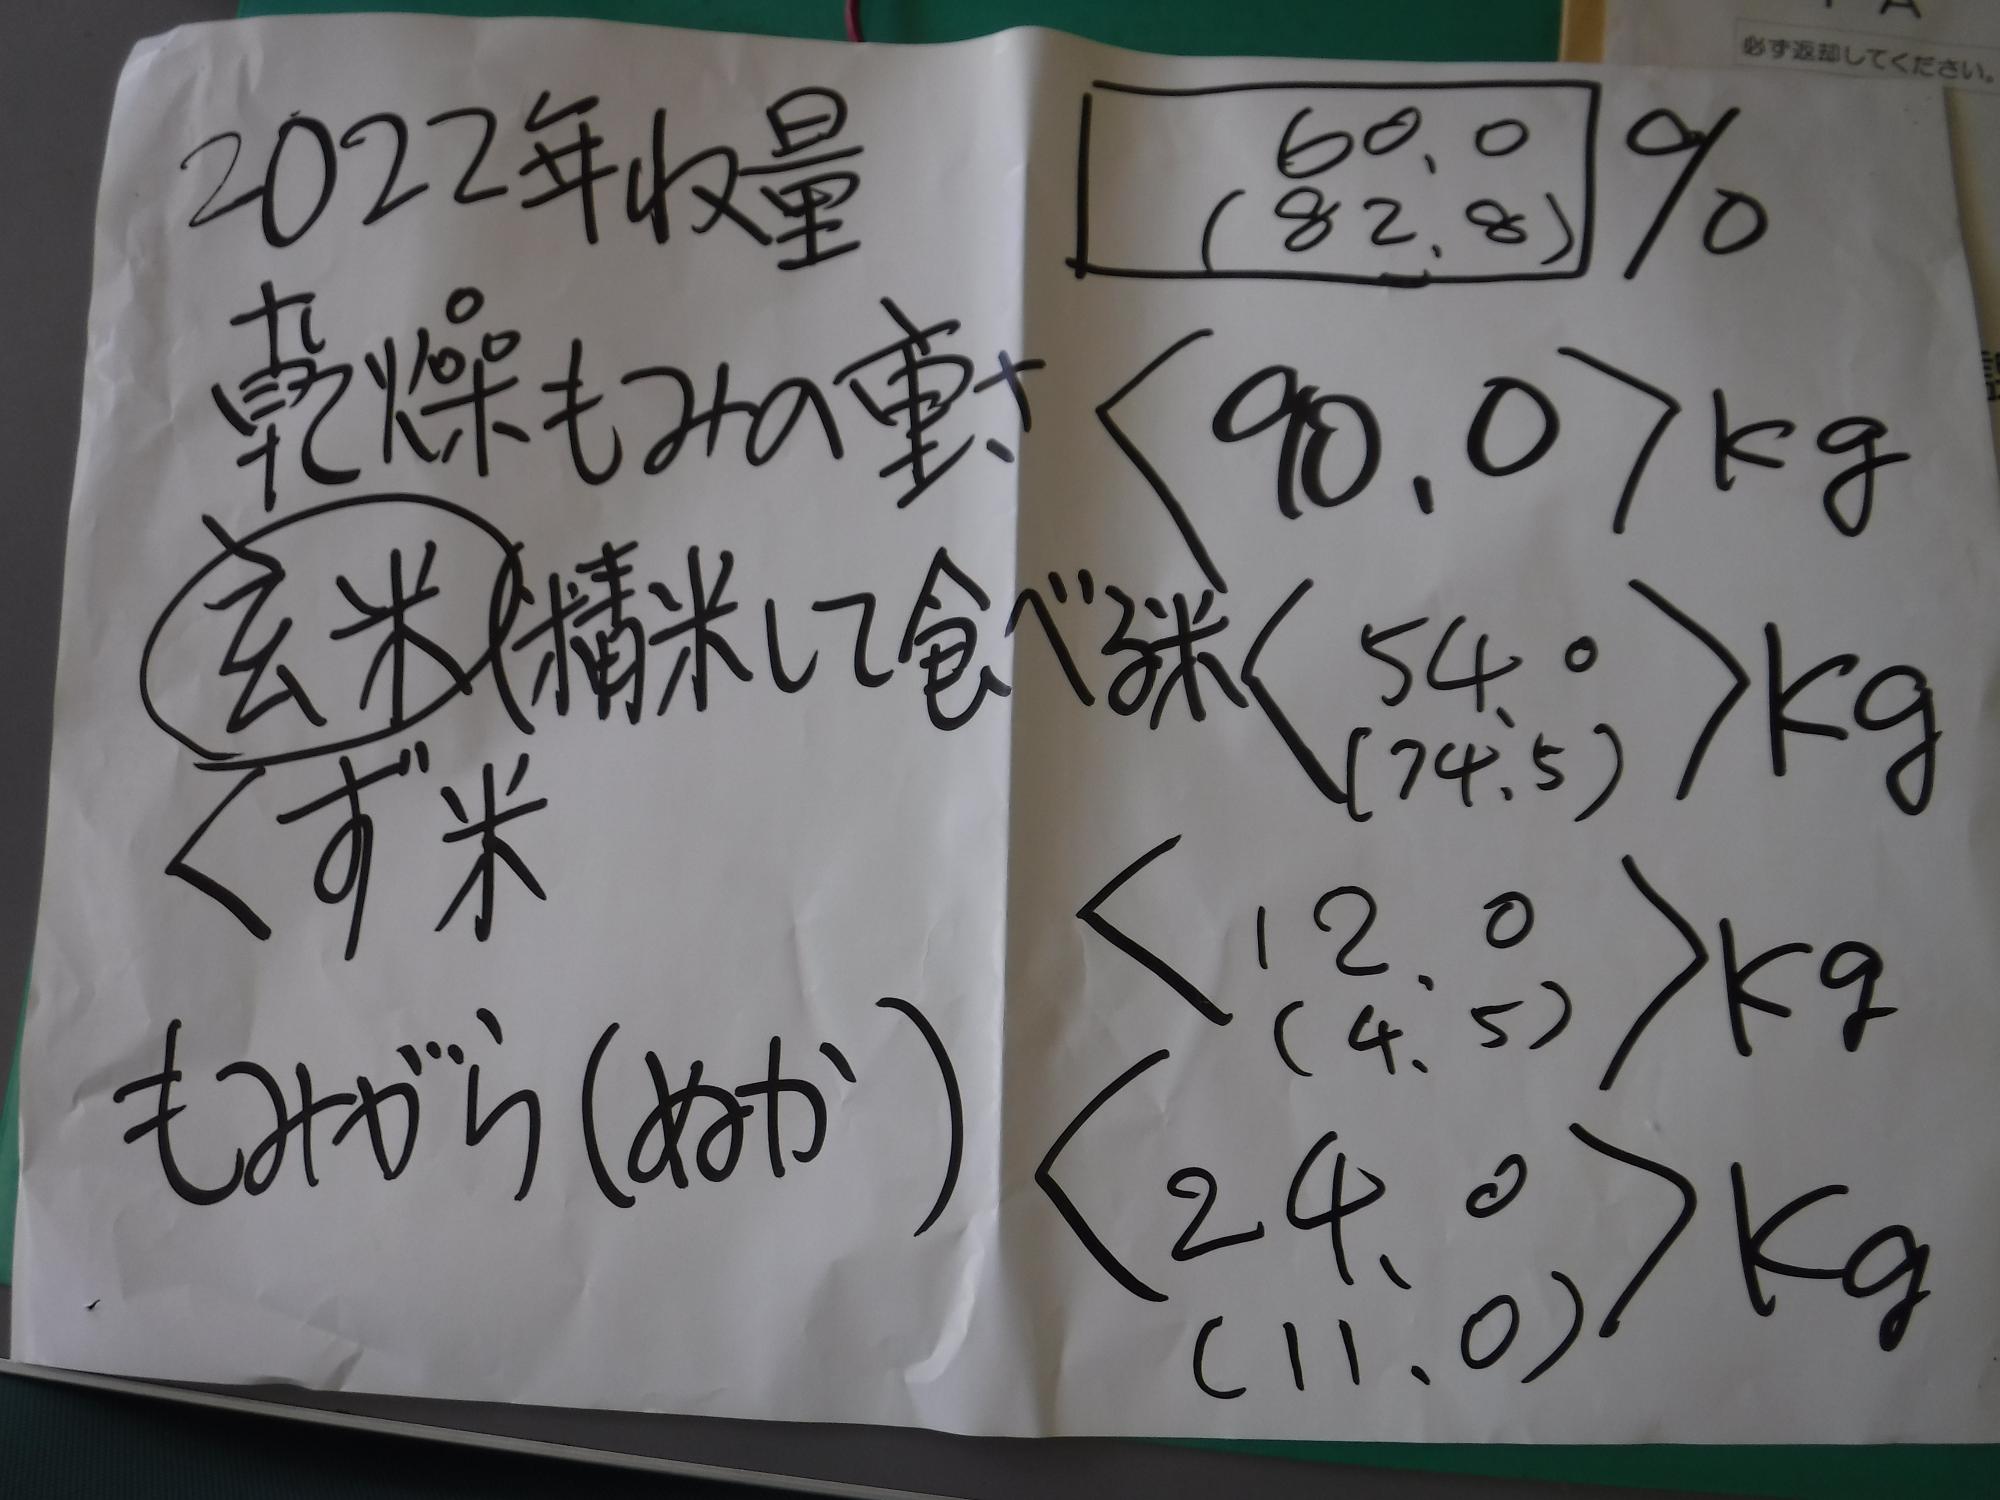 A
必ず返却してください。
2022年収量 60.0 %
(82.8)
乾燥もみの重さ 〈90.0〉kg
玄米(精米して食べる米〈54.0〉kg
(74.5)
くず米 〈12.0〉kg
(4.5)
もみがら(ぬか) 〈24.0〉kg
(11.0)